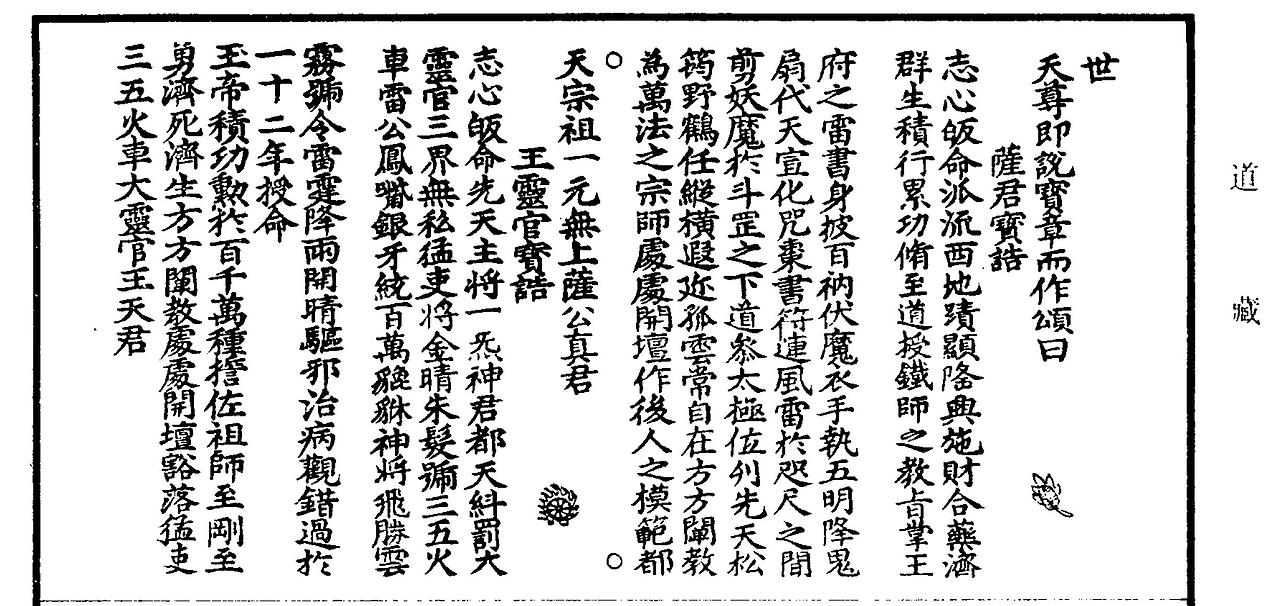 道藏
世
天尊即說寶章而作頌曰
薩君寶誥
志心皈命派流西地蹟顯隆興施財合藥濟
群生積行累功脩至道授鐵師之教旨掌王
府之雷書身披百衲伏魔衣手執五明降鬼
扇代天宣化咒棗書符運風雷於咫尺之間
剪妖魔於斗罡之下道參太極位列先天松
筠野鶴任縱橫遐迩孤雲常自在方方闡教
為萬法之宗師處處開壇作後人之模範都
○○
天宗祖一元無上薩公真君
王靈官寶誥
志心皈命先天主將一炁神君都天糾罰大
靈官三界無私猛吏將金睛朱髮號三五火
車雷公鳳嘴銀牙統百萬貔貅神將飛騰雲
霧號令雷霆降雨開晴驅邪治病觀錯過於
一十二年授命
玉帝積功勲於百千萬種擔佐祖師至剛至
勇濟死濟生方方闡教處處開壇豁落猛吏
三五火車大靈官王天君